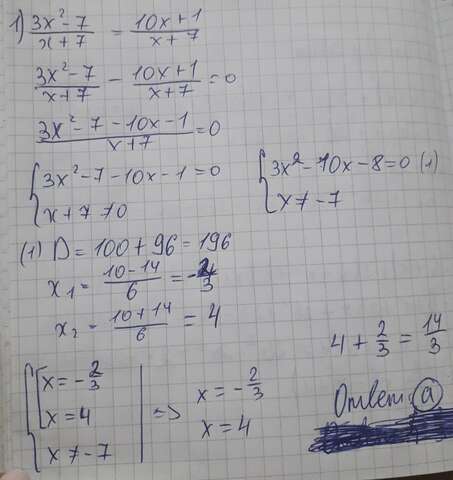 1) (3x² - 7)/(x + 7) = (10x + 1)/(x + 7)
(3x² - 7)/(x + 7) - (10x + 1)/(x + 7) = 0
(3x² - 7 - 10x - 1)/(x + 7) = 0
{ 3x² - 7 - 10x - 1 = 0
x + 7 ≠ 0
{ 3x² - 10x - 8 = 0 (1)
x ≠ -7
(1) D = 100 + 96 = 196
x₁ = (10 - 14)/6 = -2/3
x₂ = (10 + 14)/6 = 4
4 + 2/3 = 14/3
{ [ x = -2/3
x = 4
x ≠ -7
=> x = -2/3
x = 4
Ответ: a